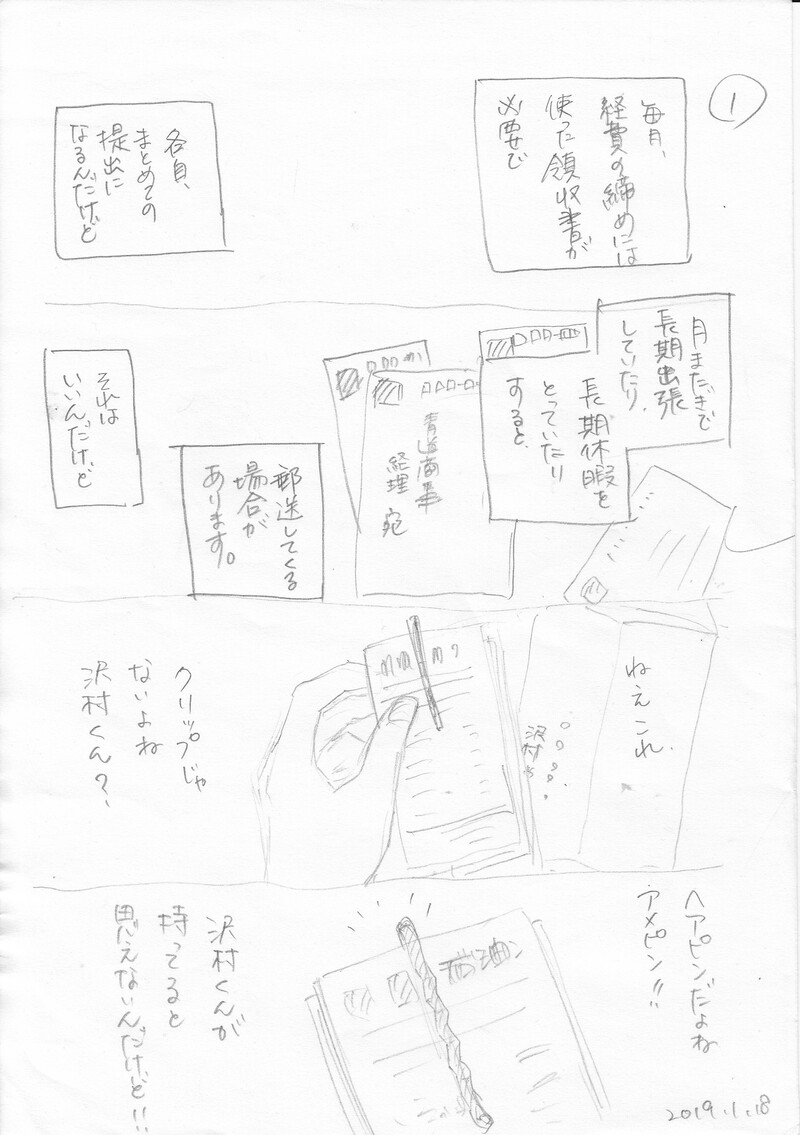 1
毎月、
経費の締めには
使った領収書が
必要で
各自、
まとめての
提出に
なるんだけど
月またぎで
長期出張
していたり、
長期休暇を
とっていたり
すると、
青道商事
経理 宛
郵送してくる
場合が
あります。
それは
いいんだけど
ねえこれ、
沢村
クリップじゃ
ないよね
沢村くん?、
ヘアピンだよね
アメピン!!
沢村くんが
持ってると
思えないんだけど!!
2019.1.18